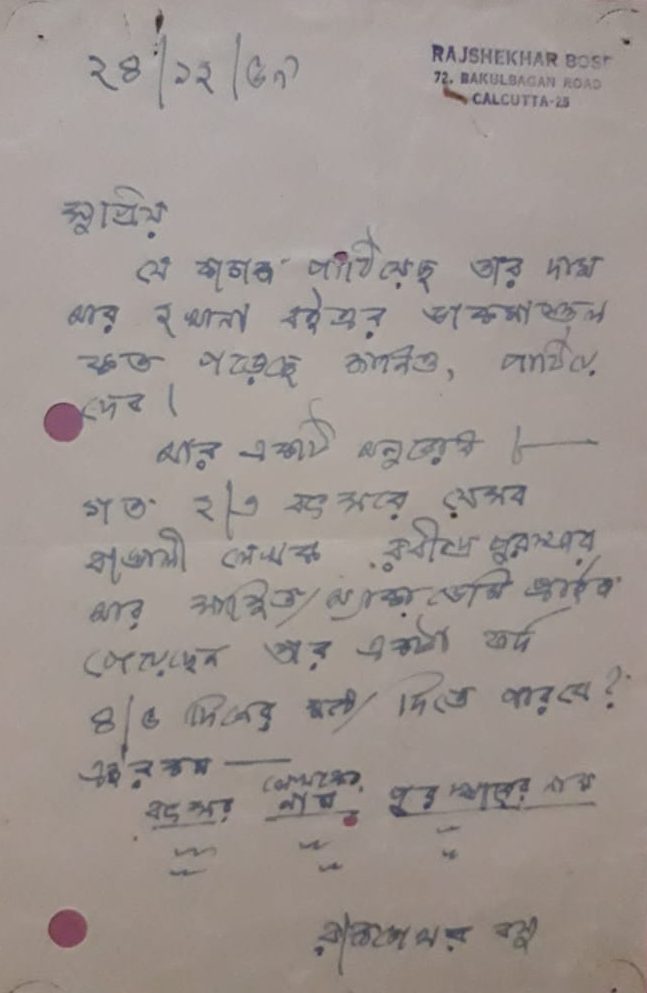 ২৪/১২/৫৭
RAJSHEKHAR BOSE
72, BAKULBAGAN ROAD
CALCUTTA-25
সুপ্রিয়
যে কাগজ পাঠিয়েছ তার দাম
আর ২ খানা বইএর ডাকমাশুল
কত পড়েছে জানিও, পাঠিয়ে
দেব।
আর একটি অনুরোধ।—
গত ২/৩ বৎসরে যেসব
বাঙালী লেখক রবীন্দ্র পুরস্কার
আর সাহিত্য অ্যাকাডেমি প্রাইজ
পেয়েছেন তার একটা ফর্দ
৪/৫ দিনের মধ্যে দিতে পারবে?
এই রকম —
বৎসর লেখকের নাম পুরস্কারের নাম
রাজশেখর বসু